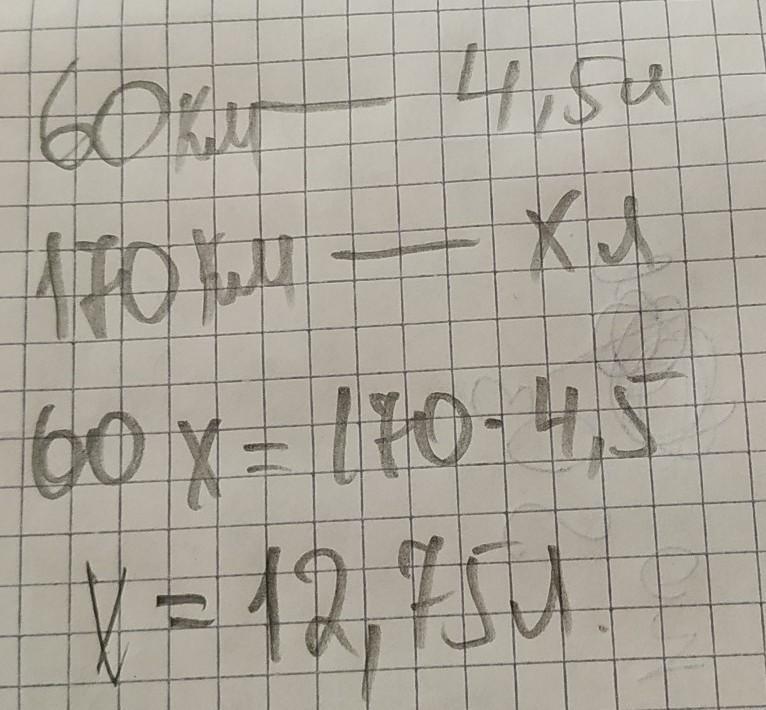 60км — 4,5л
170км — х л
60 х = 170 · 4,5
х = 12,75л.